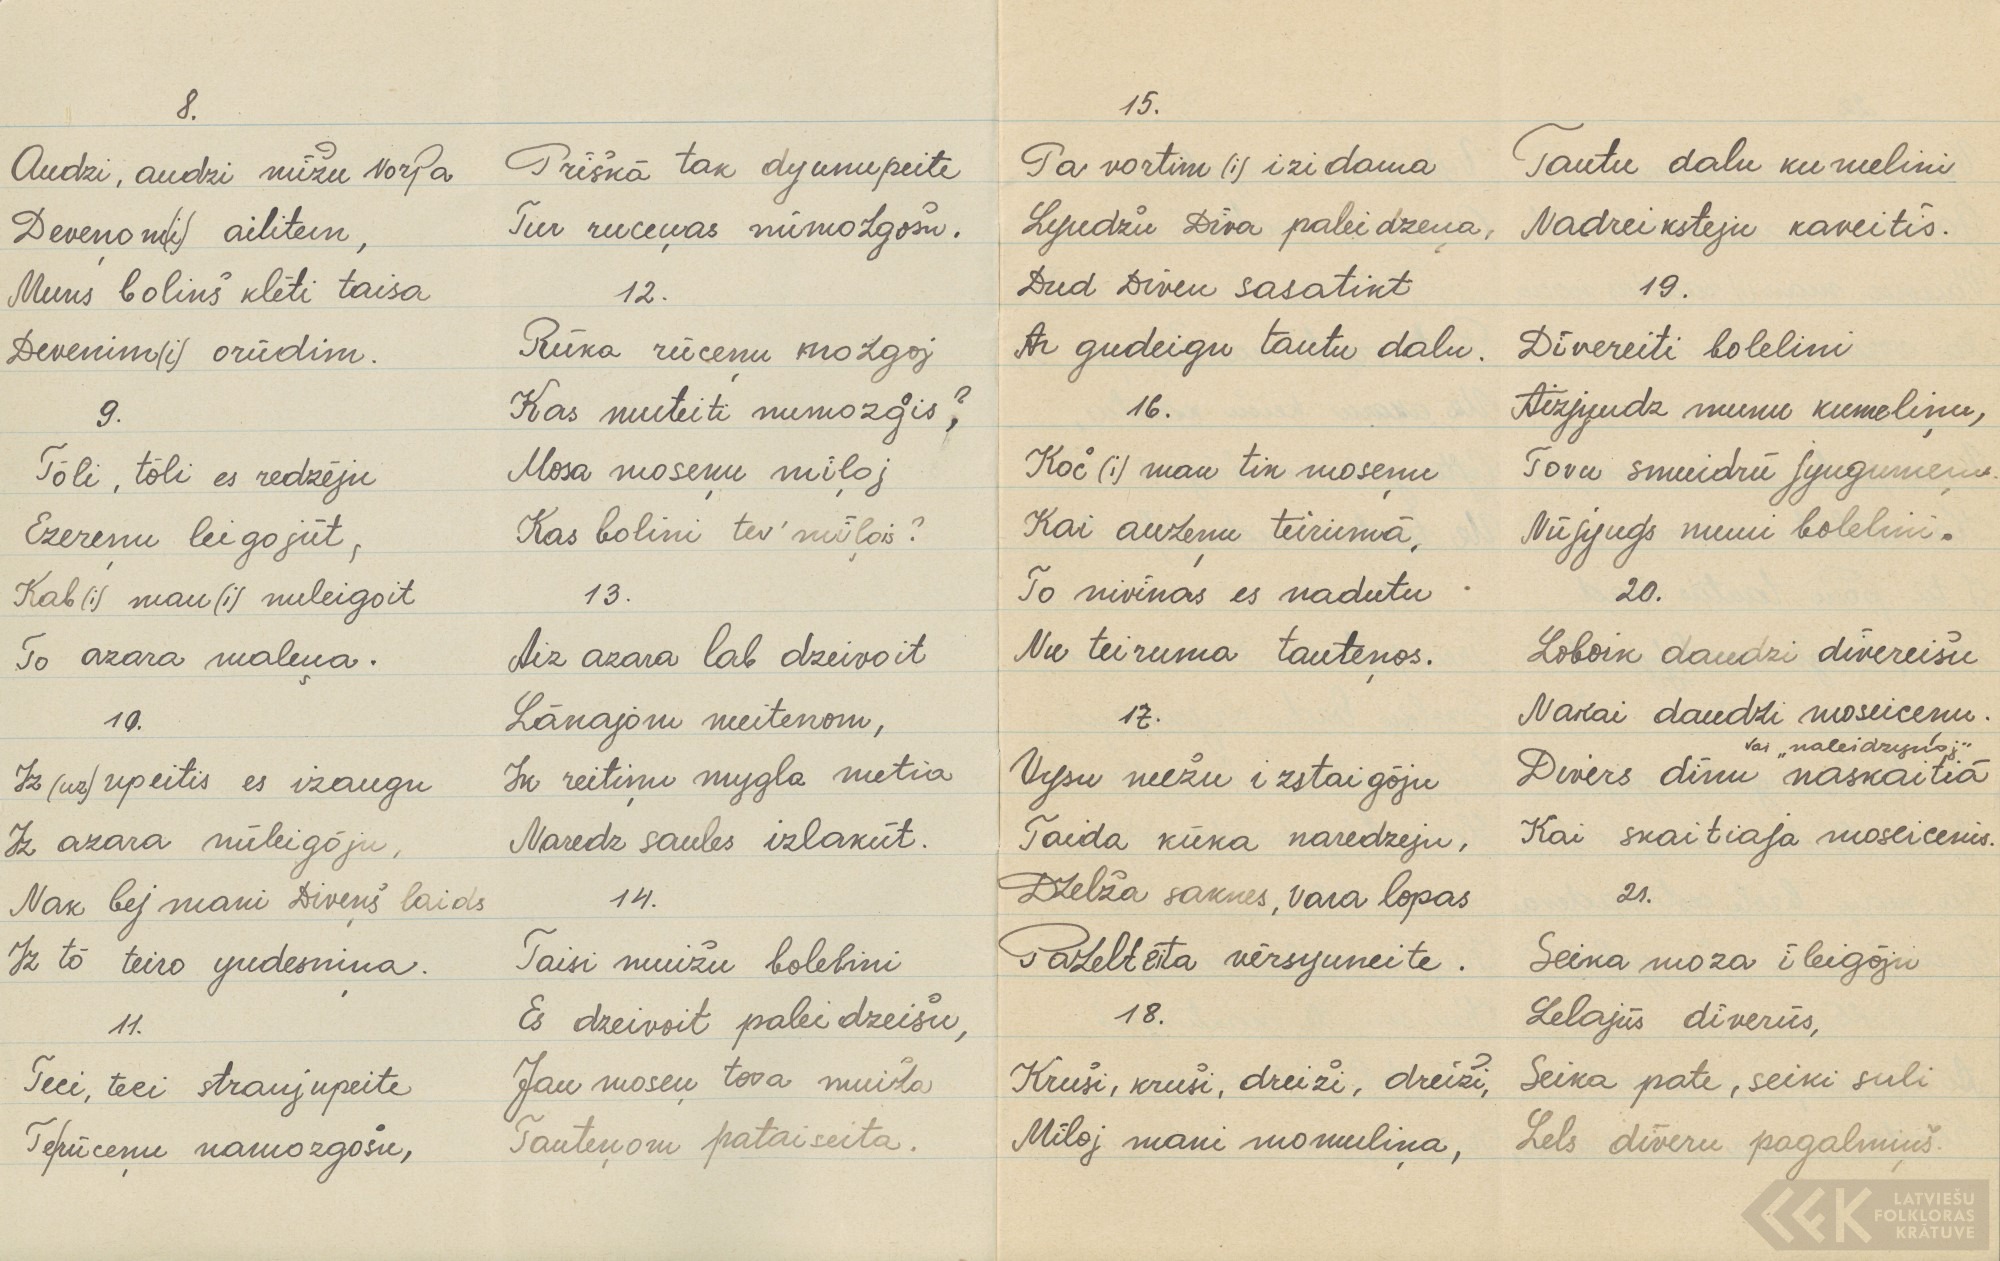 8.
Audzi, audzi mižu vorpa
Deveņom(i) ailitem,
Muns boliņš klēti taisa
Devenim(i) orūdim.
9.
Tōli, tōli es redzēju
Ezereņu leigojūt,
Kab(i) man(i) nuleigoit
To azara maleņa.
10.
Iz (uz) upeitis es izaugu
Iz azara nūleigōju,
Nak bej mani Diveņš laids
Iz tō teiro yudesniņa.
11.
Teci, teci straujupeite
Te rūceņu namozgošu,
Priškā tak dyumupeite
Tur ruceņas nūmozgošu.
12.
Rūka rūceņu mozgoj
Kas muteiti numozgis?
Mosa moseņu miļoj
Kas bolini tev' miļois?
13.
Aiz azara lab dzeivoit
Lānajom meitenom,
Ik reitiņu mygla metia
Naredz saules izlakūt.
14.
Taisi muižu bolelini
Es dzeivoit paleidzeišu,
Jau moseņ tova muiža
Tauteņom pataiseita.
15.
Pa vortim (i) izidama
Lyudzu Diva paleidzeņa,
Dud Diveu sasatikt
Ar gudeigu tautu dalu.
16.
Koč (i) man tik moseņu
Kai auzeņu teirumā,
To nivinas es nadutu
Nu teiruma tauteņos.
17.
Vysu mežu izstaigōju
Taida kūka naredzeju,
Dzelža saknes, vara lopas
Pazelteita vērsyuneite.
18.
Kruši, kruši, dreiži, dreiži,
Miloj mani momuliņa,
Tautu dalu kumelini
Nadreiksteju kaveitis.
19.
Divereiti bolelini
Aizjyudz munu kumeliņu,
Tovu smuidrū jyugumeņu
Nūjyugs muni bolelini.
20.
Loboik daudzi divereišu
Nakai daudzi moseicenu.
vai „naleidzynoj"
Divers dinu naskaitiā
Kai skaitiaja moseicenis.
21.
Seika moza ileigōju
Lelajūs diverūs,
Seika pate, seiki suli
Lels diveru pagalmiņš.
LATVIEŠU
FOLKLORAS
KRĀTUVE